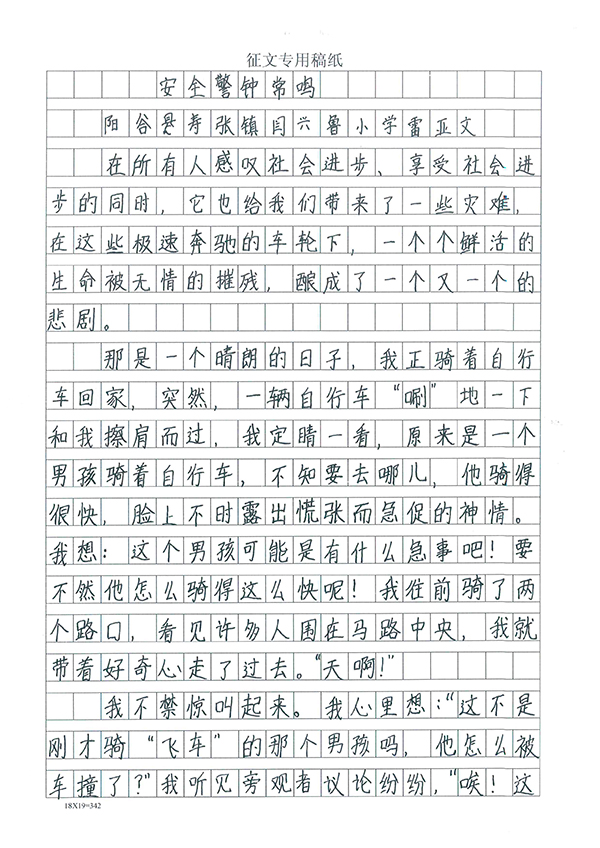 征文专用稿纸
安全警钟常鸣
阳谷县寿张镇闫兴鲁小学雷亚文
在所有人感叹社会进步、享受社会进
步的同时，它也给我们带来了一些灾难，
在这些极速奔驰的车轮下，一个个鲜活的
生命被无情的摧残，酿成了一个又一个的
悲剧。
那是一个晴朗的日子，我正骑着自行
车回家，突然，一辆自行车“唰”地一下
和我擦肩而过，我定睛一看，原来是一个
男孩骑着自行车，不知要去哪儿，他骑得
很快，脸上不时露出慌张而急促的神情。
我想：这个男孩可能是有什么急事吧！要
不然他怎么骑得这么快呢！我往前骑了两
个路口，看见许多人围在马路中央，我就
带着好奇心走了过去。“天啊！”
我不禁惊叫起来。我心里想：“这不是
刚才骑“飞车”的那个男孩吗，他怎么被
车撞了？”我听见旁观者议论纷纷，“唉！这
18X19=342